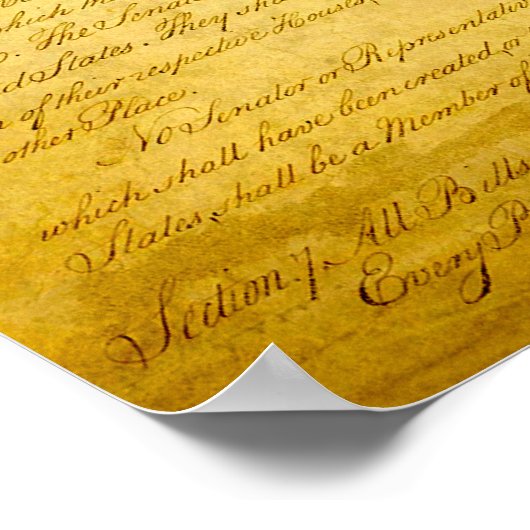 which
. The Senat
d States. They sha
of their respective Houses,
other Place.
No Senator or Representative
which shall have been created, or
States, shall be a Member of
Section. 7. All Bills
Every